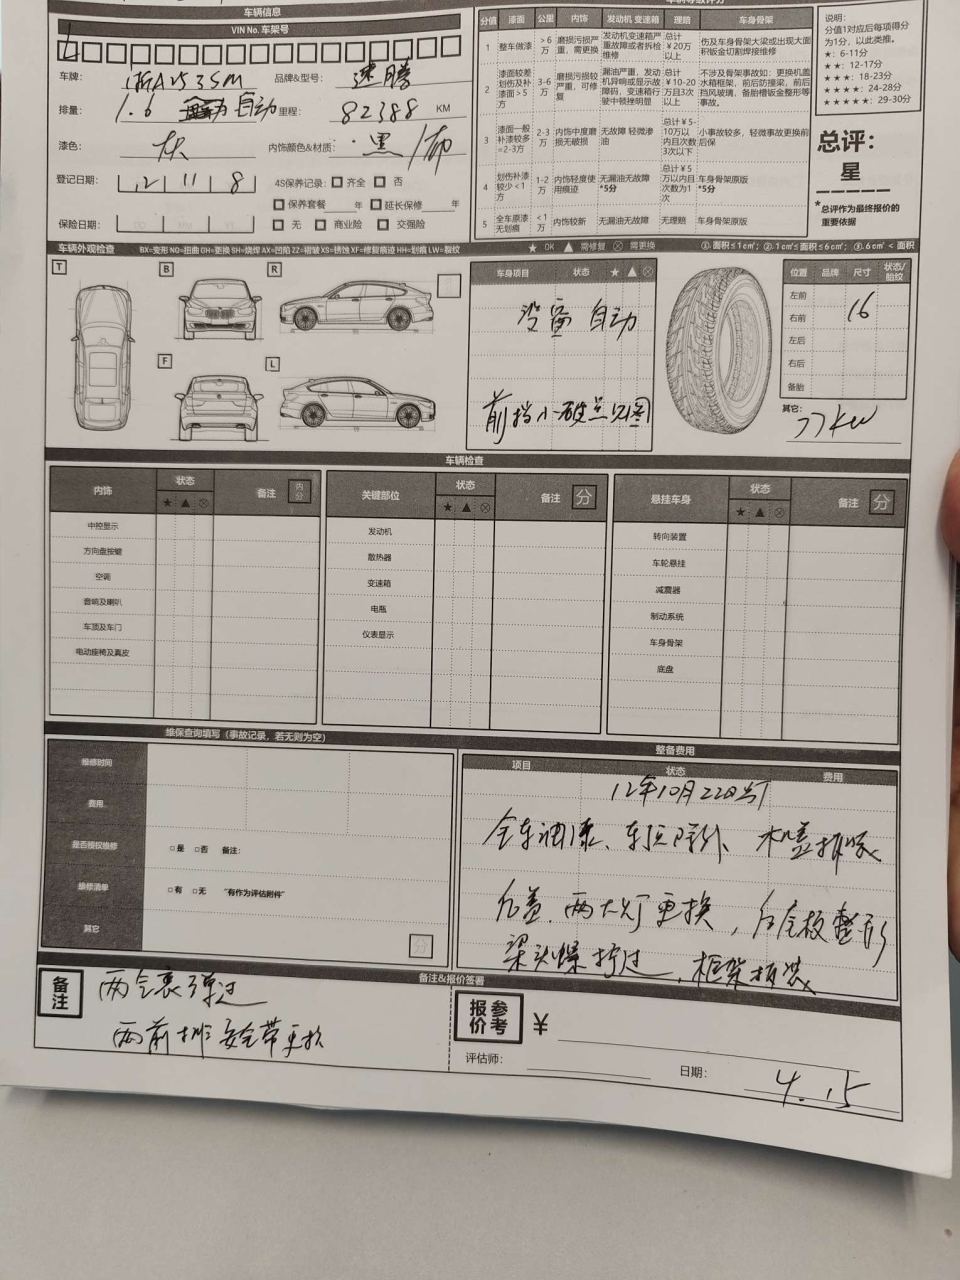 车辆信息
VIN No. 车架号
车牌: 浙A J535M 品牌&型号: 速腾
排量: 1.6 自动 里程: 82388 KM
漆色: 灰 内饰颜色&材质: 黑/布
登记日期: 12 11 8 4S保养记录: □ 齐全 □ 否
□ 保养套餐 年 □ 延长保修 年
保险日期: □ 无 □ 商业险 □ 交强险
分值 漆面 公里 内饰 发动机 变速箱 理赔 车身骨架
1 整车做漆 >6万 磨损污损严重,需更换 发动机变速箱严重故障或者拆检维修 总计¥20万以上 伤及车身骨架大梁或出现大面积钣金切割焊接维修
2 漆面较差划伤及补漆面>5方 3-6万 磨损污损较严重,可修复 漏油严重,发动机异响或显示故障码,变速箱行驶中顿挫明显 总计¥10-20万且3次以上 不涉及骨架事故如:更换机盖水箱框架,前后防撞梁,前后挡风玻璃,备胎槽钣金整形等事故。
3 漆面一般补漆较多=2-3方 2-3万 内饰中度磨损无破损 无故障 轻微渗油 总计¥5-10万以内且次数3次以下 小事故较多,轻微事故更换前后保
4 划伤补漆较少<1方 1-2万 内饰轻度使用痕迹 无漏油无故障 *5分 总计¥5万以内且次数为1次 车身骨架原版 *5分
5 全车原漆无划痕 <1万 内饰较新 无漏油无故障 无理赔 车身骨架原版
说明:
分值1对应后每项得分为1分,以此类推。
★: 6-11分
★★: 12-17分
★★★: 18-23分
★★★★: 24-28分
★★★★★: 29-30分
总评:
星
*总评作为最终报价的重要依据
车辆外观检查 BX=变形 NQ=扭曲 GH=更换 SH=烧焊 AX=凹陷 ZZ=褶皱 XS=锈蚀 XF=修复痕迹 HH=划痕 LW=裂纹 ★ OK ▲ 需修复 ⊗ 需更换 ①. 面积≤1㎝²; ②. 1㎝²≤面积≤6㎝²; ③. 6㎝²<面积
T B R
F L
车身项目 状态 ★ ▲ ⊗
没窗 自动
前挡小破点见图
位置 品牌 尺寸 状态/胎纹
左前
右前 16
左后
右后
备胎
其它: 77kw
车辆检查
内饰 状态 ★ ▲ ⊗ 备注 内分
中控显示
方向盘按键
空调
音响及喇叭
车顶及车门
电动座椅及真皮
关键部位 状态 ★ ▲ ⊗ 备注 分
发动机
散热器
变速箱
电瓶
仪表显示
悬挂车身 状态 ★ ▲ ⊗ 备注 分
转向装置
车轮悬挂
减震器
制动系统
车身骨架
底盘
维保查询填写(事故记录,若无则为空)
维修时间
费用
是否授权维修 □是 □否 备注:
维修清单 □有 □无 "有作为评估附件"
其它 分
整备费用
项目 状态 费用
12年10月22日出厂
全车油漆、车顶除外、机盖拆喷
后盖、两大灯更换,后底板整形
梁头螺拧过,框架拆装
备注&报价签署
备注
两气囊弹过
两前排安全带更换
参考报价 ¥
评估师: 日期: 4.15